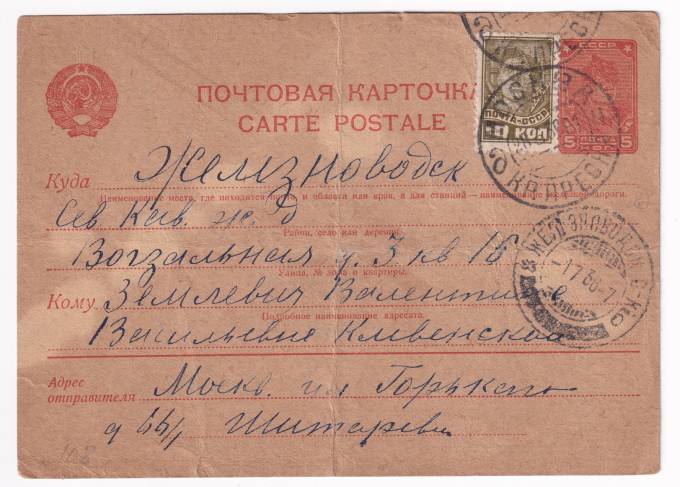 ПОЧТОВАЯ КАРТОЧКА
CARTE POSTALE
СССР
ПОЧТА-СССР
10 КОП
5 ПОЧТА 5
Куда Железноводск
Наименование места, где находится почта и области или края, а для станций – наименование железной дороги.
Сев Кав. ж. д
Район, село или деревня.
Вогзальная д. 3 кв 16
Улица, № дома и квартиры.
Кому Землевич Валентине
Подробное наименование адресата.
Васильевне
Адрес
отправителя Москв. ул Горького
д
108